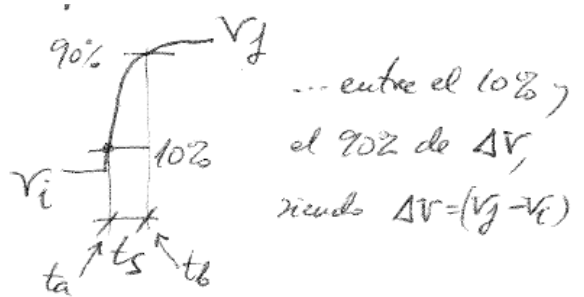 90%
Vf
10%
Vi
ta
ts
tb
... entre el 10% y
el 90% de ΔV,
siendo ΔV=(Vf-Vi)